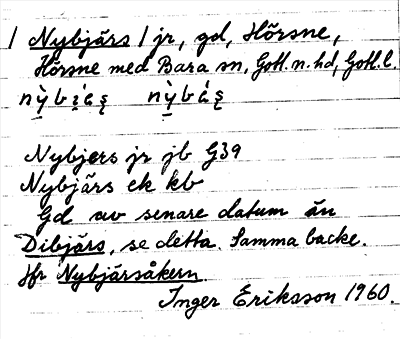 1 Nybjärs 1 jr, gd, Hörsne,
Hörsne med Bara sn, Gotl. n. hd, Gotl. l.
Nybjers jr jb G39
Nybjärs ek kb
Gd av senare datum än
Dibjärs, se detta. Samma backe.
Jfr Nybjärsåkern.
Inger Eriksson 1960.